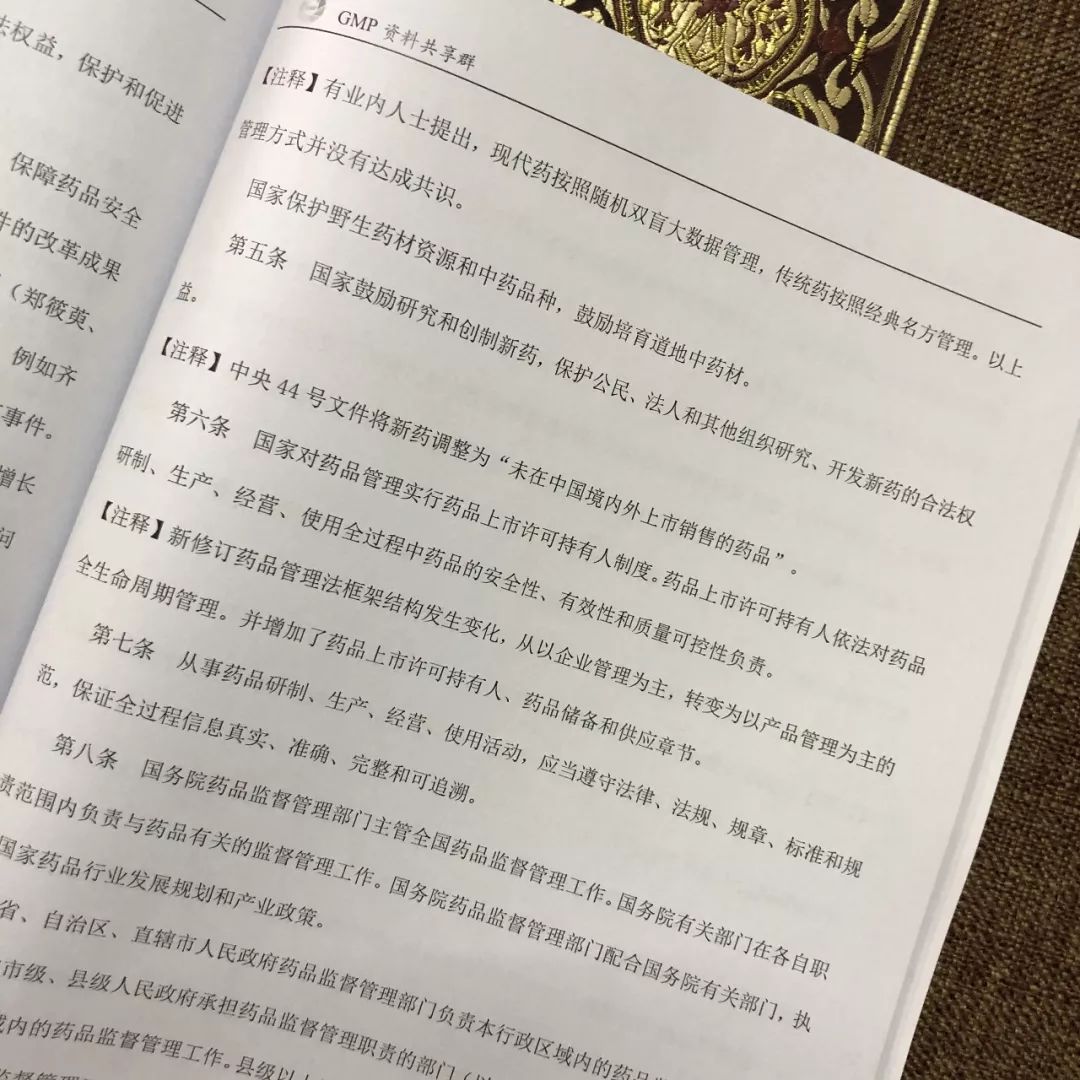 法权益，保护和促进
保障药品安全
件的改革成果
（郑筱萸、
例如齐
事件。
增长
问
GMP 资料共享群
【注释】有业内人士提出，现代药按照随机双盲大数据管理，传统药按照经典名方管理。以上
管理方式并没有达成共识。
国家保护野生药材资源和中药品种，鼓励培育道地中药材。
第五条 国家鼓励研究和创制新药，保护公民、法人和其他组织研究、开发新药的合法权
益。
【注释】中央 44 号文件将新药调整为“未在中国境内外上市销售的药品”。
第六条 国家对药品管理实行药品上市许可持有人制度。药品上市许可持有人依法对药品
研制、生产、经营、使用全过程中药品的安全性、有效性和质量可控性负责。
【注释】新修订药品管理法框架结构发生变化，从以企业管理为主，转变为以产品管理为主的
全生命周期管理。并增加了药品上市许可持有人、药品储备和供应章节。
第七条 从事药品研制、生产、经营、使用活动，应当遵守法律、法规、规章、标准和规
范，保证全过程信息真实、准确、完整和可追溯。
第八条 国务院药品监督管理部门主管全国药品监督管理工作。国务院有关部门在各自职
责范围内负责与药品有关的监督管理工作。国务院药品监督管理部门配合国务院有关部门，执
国家药品行业发展规划和产业政策。
省、自治区、直辖市人民政府药品监督管理部门负责本行政区域内的药品
市级、县级人民政府承担药品监督管理职责的部门（以
域内的药品监督管理工作。县级以上
监督管理